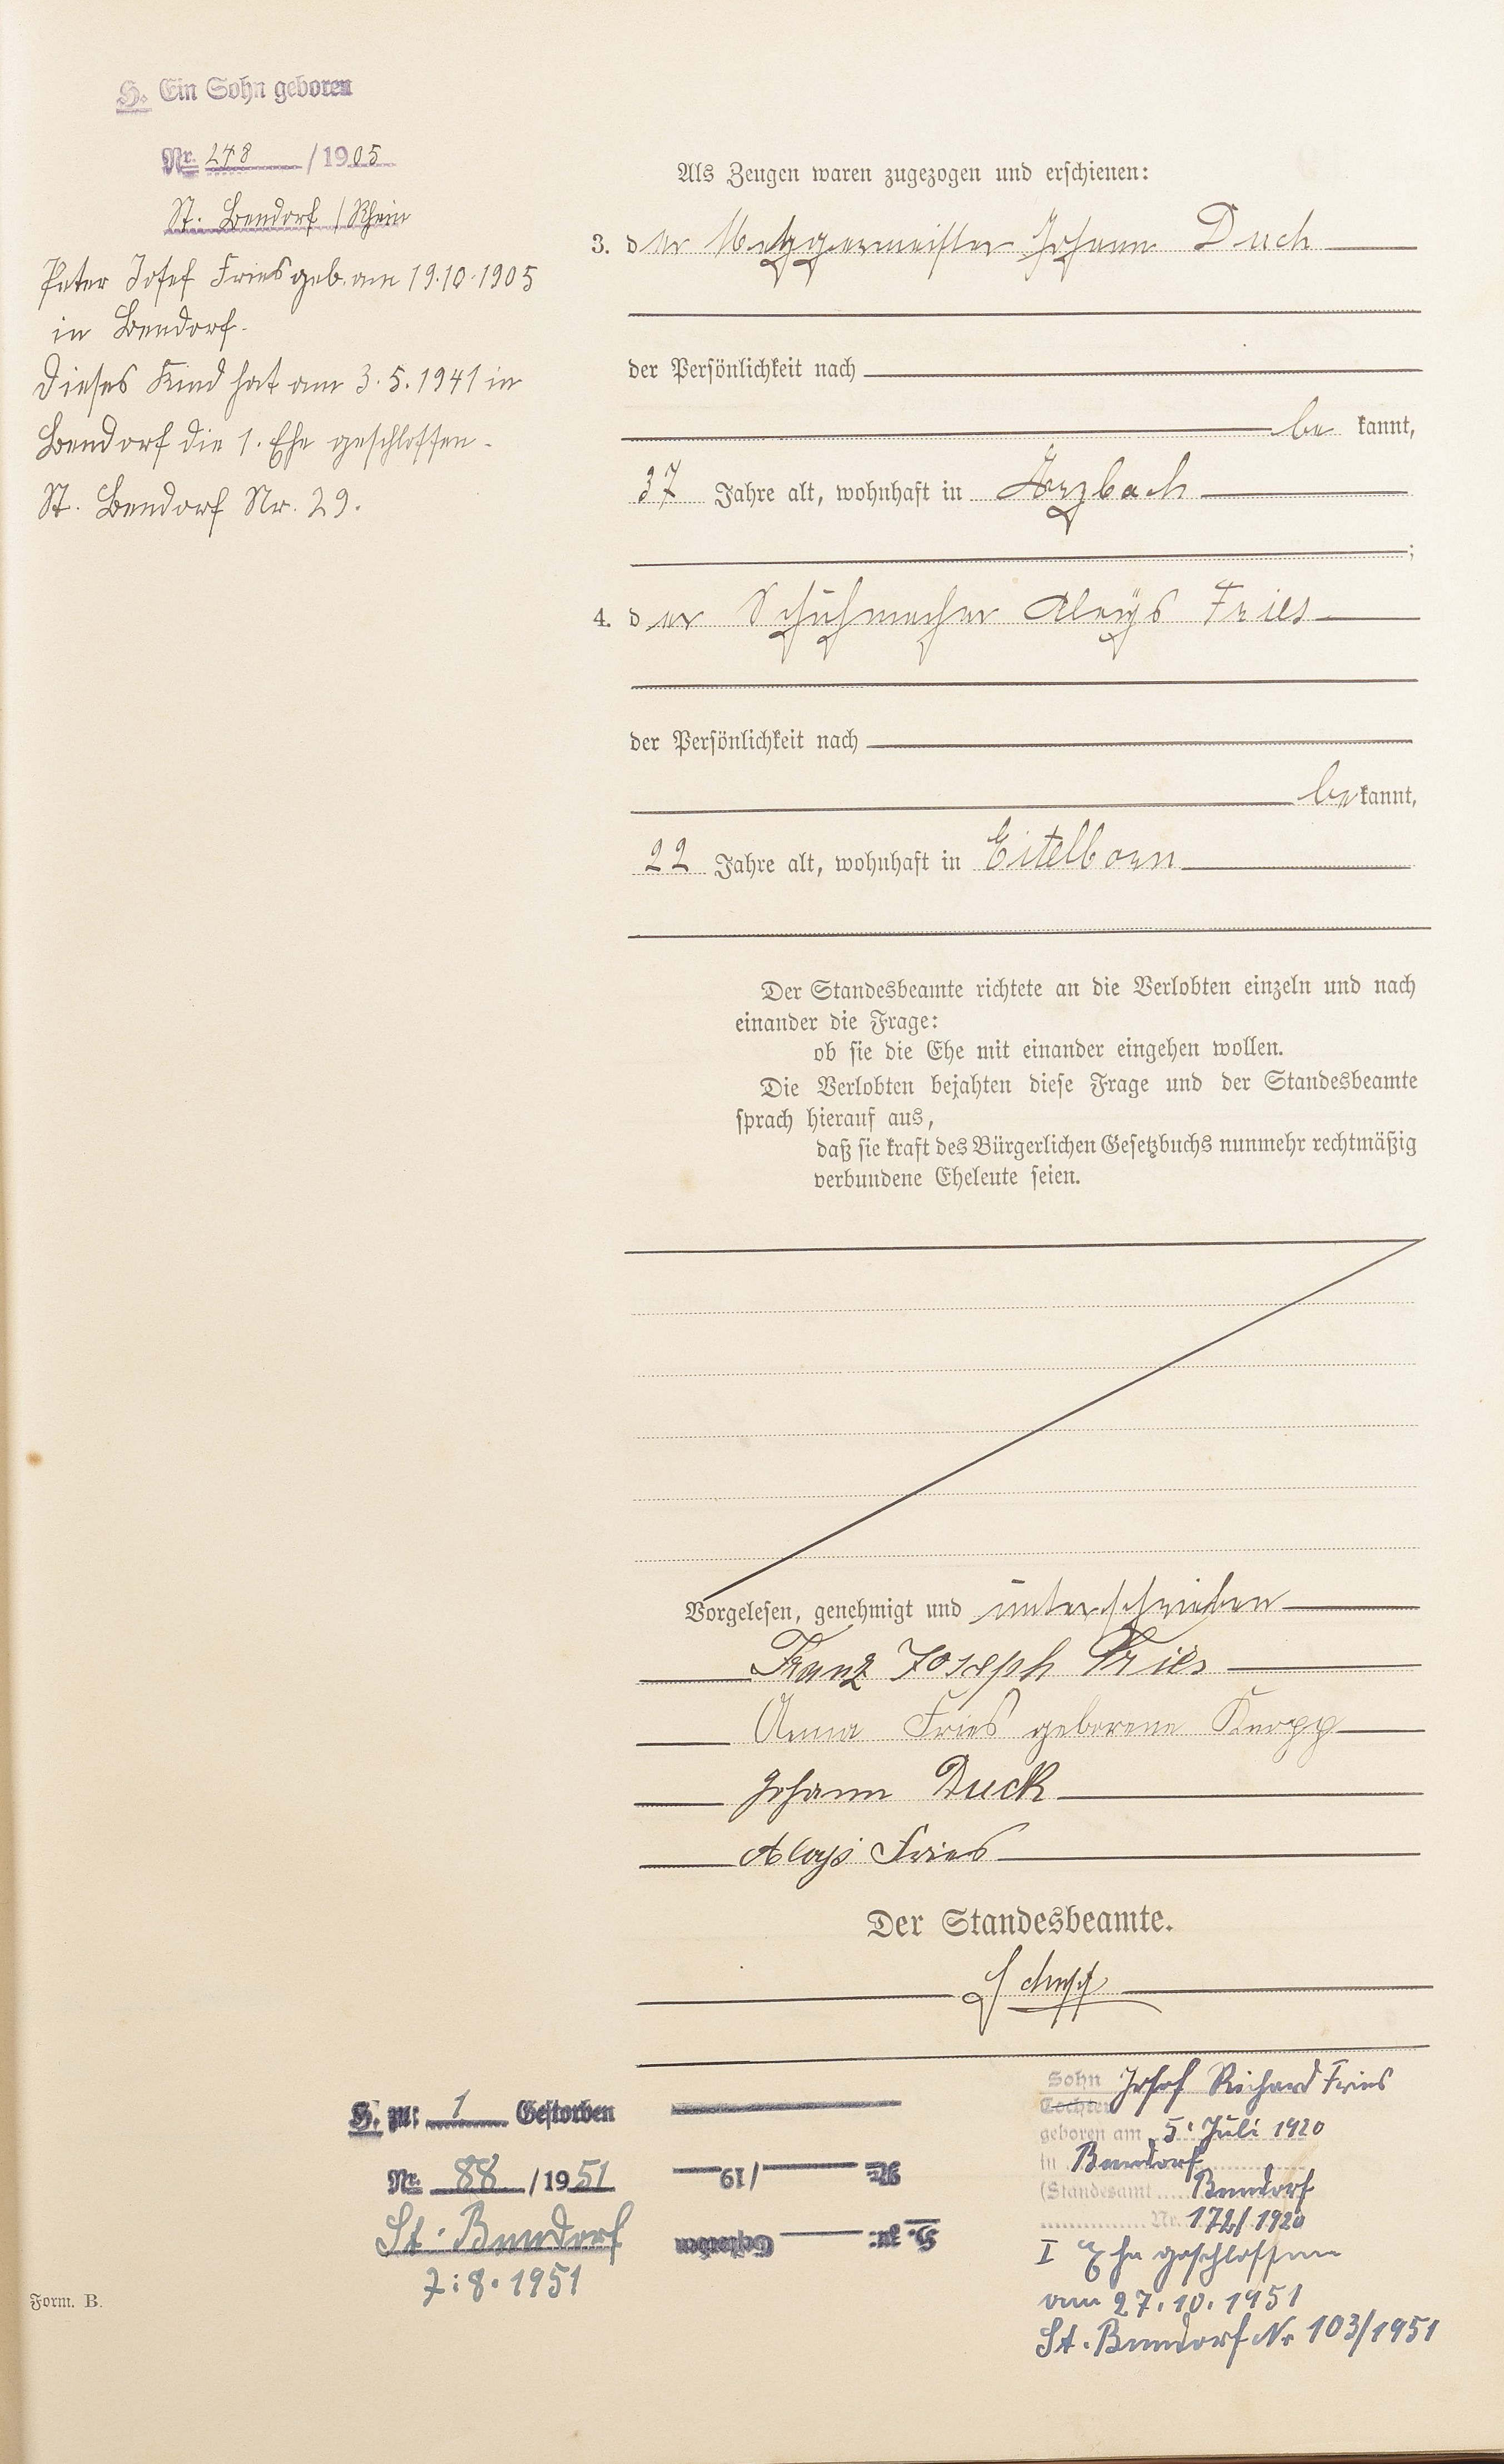 H. Ein Sohn geboren
Nr. 248 / 1905
St. Bendorf / Rhein
Peter Josef Fries geb. am 19.10.1905
in Bendorf.
Dieses Kind hat am 3.5.1941 in
Bendorf die 1. Ehe geschlossen.
St. Bendorf Nr. 29.
Als Zeugen waren zugezogen und erschienen:
3. der Metzgermeister Johann Duck
der Persönlichkeit nach
be kannt,
37 Jahre alt, wohnhaft in Arzbach
;
4. der Schuhmacher Aloys Fries
der Persönlichkeit nach
be kannt,
22 Jahre alt, wohnhaft in Eitelborn
Der Standesbeamte richtete an die Verlobten einzeln und nach
einander die Frage:
ob sie die Ehe mit einander eingehen wollen.
Die Verlobten bejahten diese Frage und der Standesbeamte
sprach hierauf aus,
daß sie kraft des Bürgerlichen Gesetzbuchs nunmehr rechtmäßig
verbundene Eheleute seien.
Vorgelesen, genehmigt und unterschrieben
Franz Joseph Fries
Anna Fries geborene Knopp
Johann Duck
Aloys Fries
Der Standesbeamte.
H. zu: 1 Gestorben
Nr. 88 / 1951
St. Bendorf
7.8.1951
H. zu: Gestorben
Nr. / 19
Sohn Josef Richard Fries
Tochter
geboren am 5. Juli 1920
in Bendorf
(Standesamt Bendorf
Nr. 172/1920
I Ehe geschlossen
am 27.10.1951
St. Bendorf Nr 103/1951
Form. B.